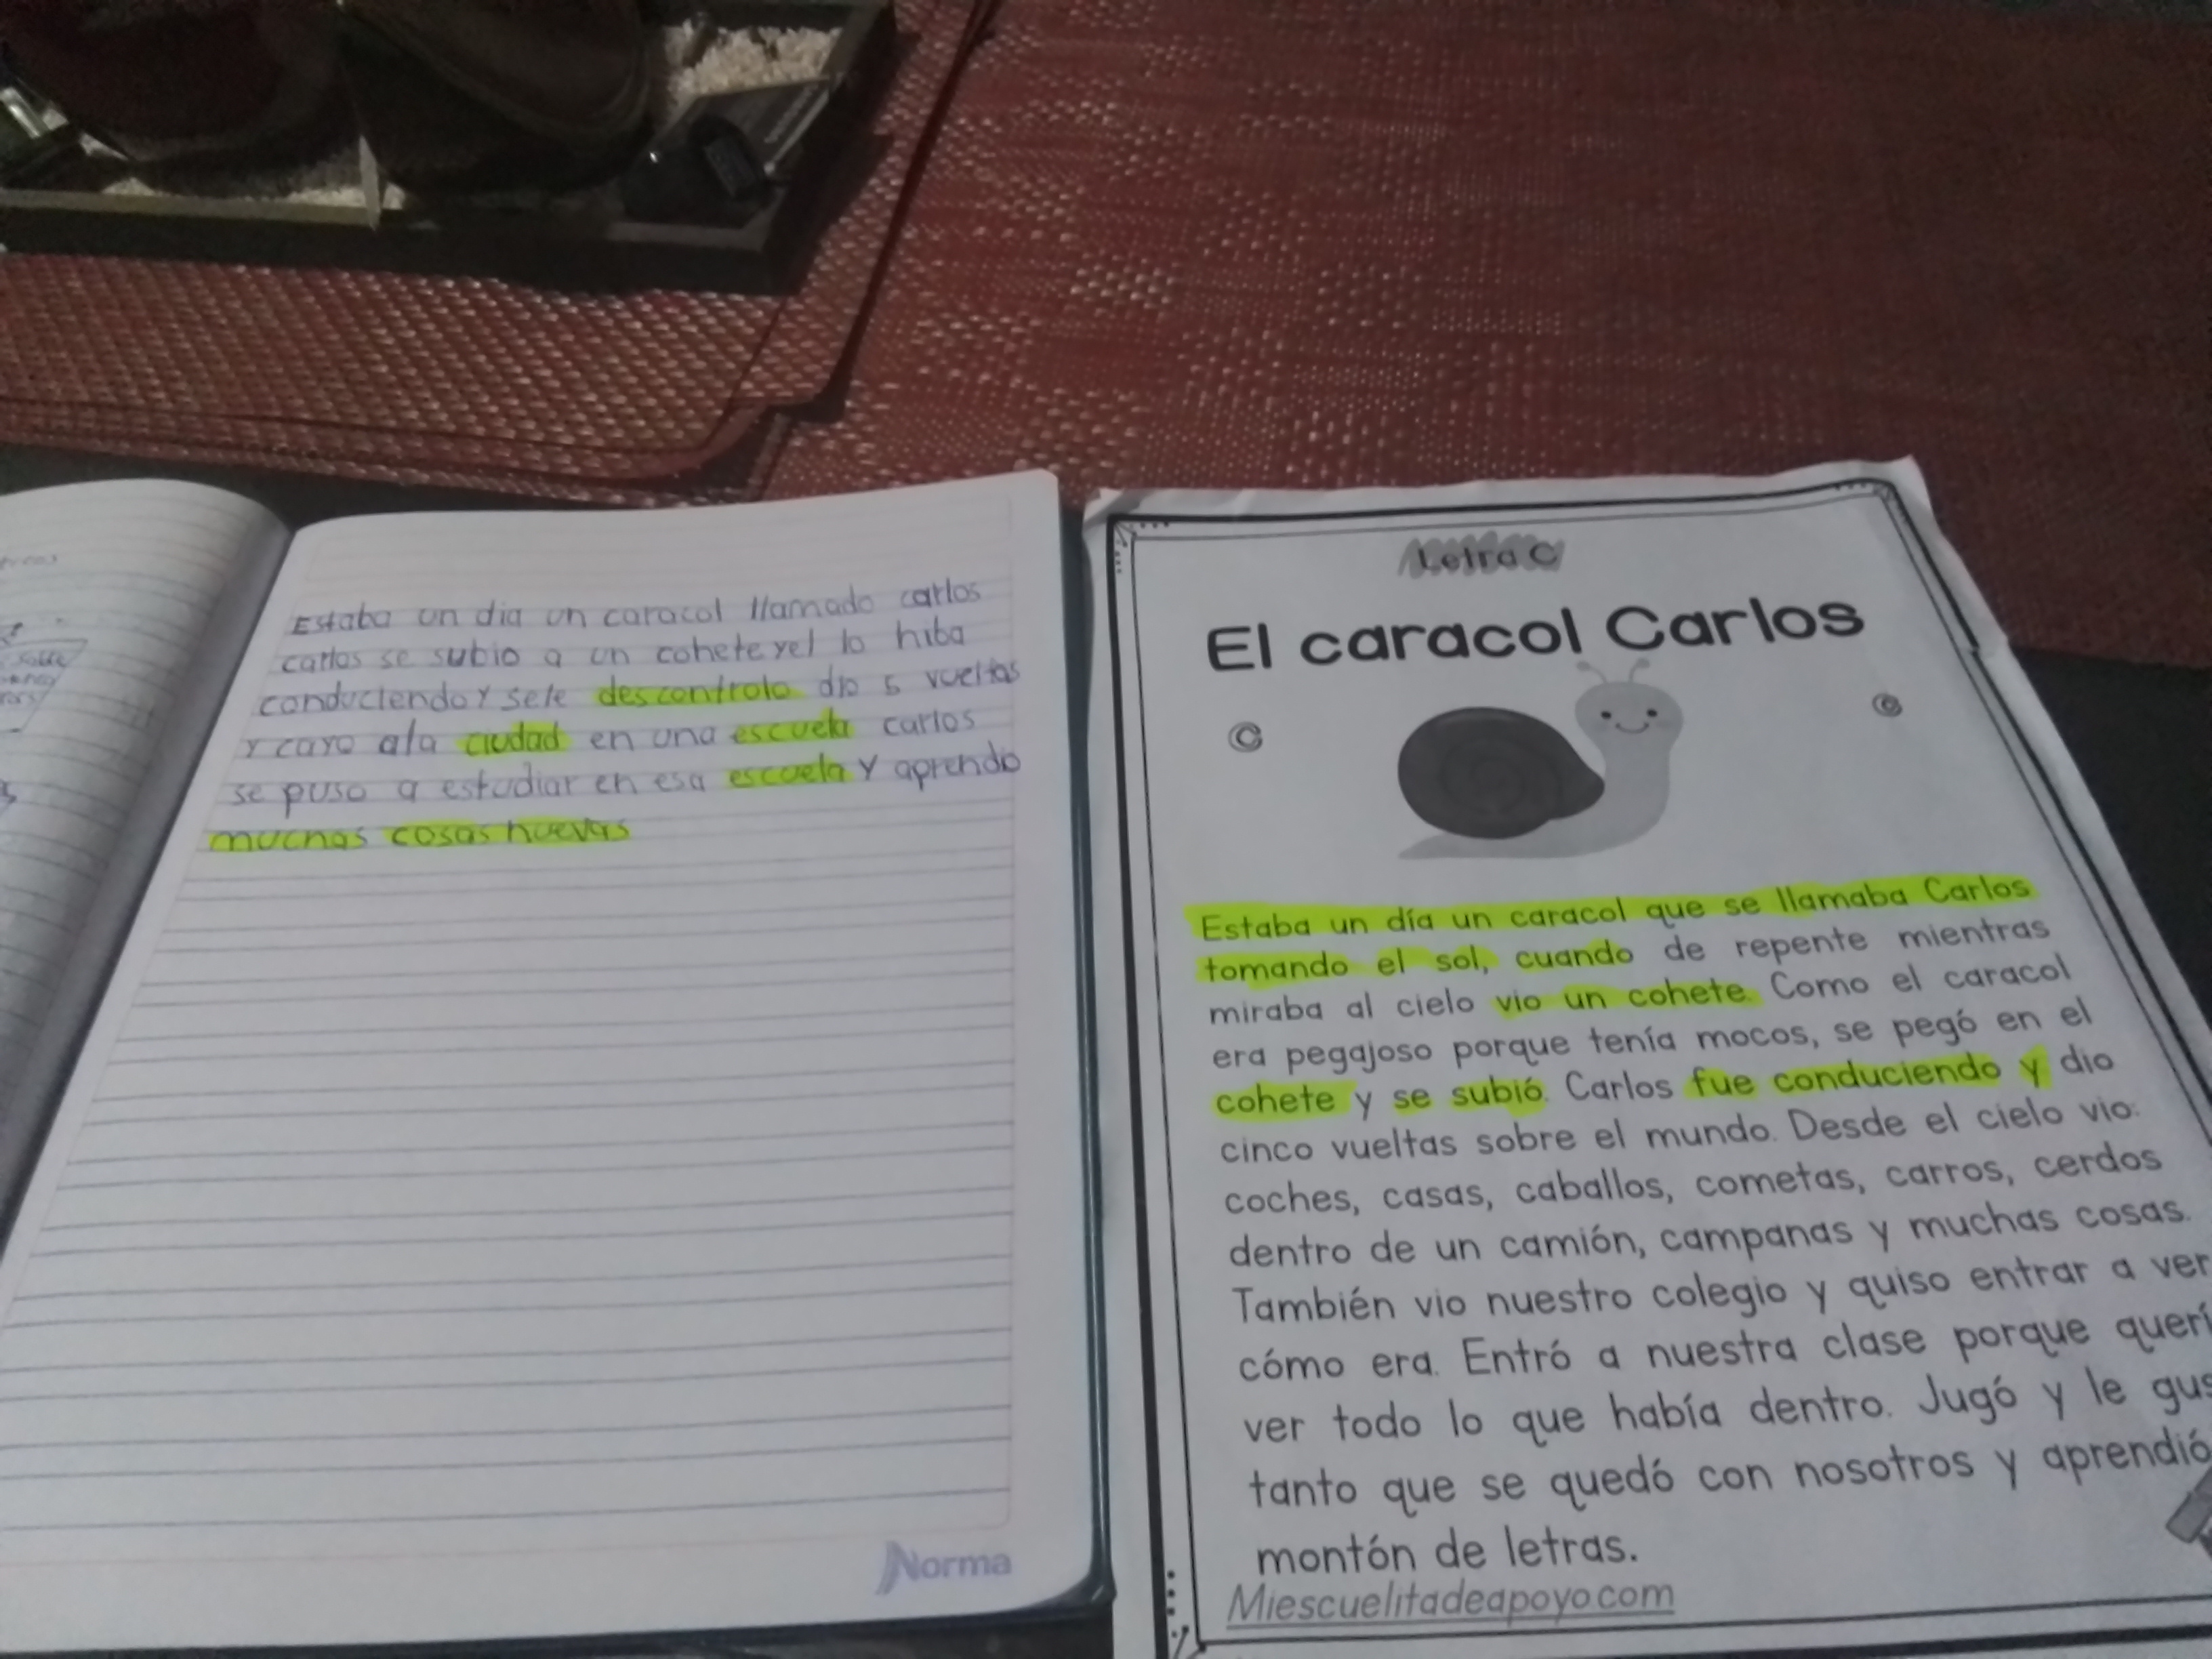 Estaba un dia un caracol llamado carlos
carlos se subio a un cohete yel lo hiba
conduciendo y sele descontrolo dio 5 vueltas
y cayo ala ciudad en una escuela carlos
se puso a estudiar en esa escuela y aprendio
muchas cosas nuevas
Norma
Letra C
El caracol Carlos
C
C
Estaba un día un caracol que se llamaba Carlos
tomando el sol, cuando de repente mientras
miraba al cielo vio un cohete. Como el caracol
era pegajoso porque tenía mocos, se pegó en el
cohete y se subió. Carlos fue conduciendo y dio
cinco vueltas sobre el mundo. Desde el cielo vio:
coches, casas, caballos, cometas, carros, cerdos
dentro de un camión, campanas y muchas cosas.
También vio nuestro colegio y quiso entrar a ver
cómo era. Entró a nuestra clase porque querí
ver todo lo que había dentro. Jugó y le gus
tanto que se quedó con nosotros y aprendió
montón de letras.
Miescuelitadeapoyo.com